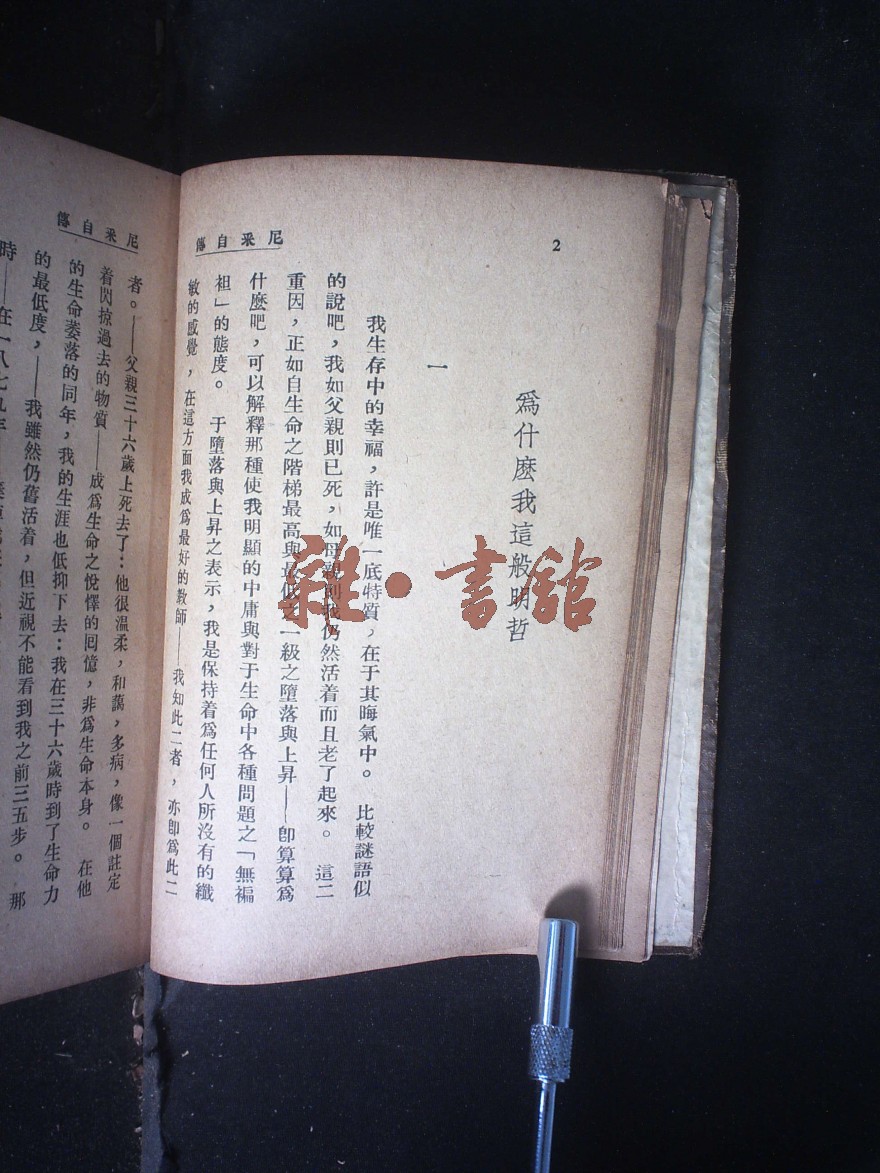 2
尼采自傳
爲什麽我這般明哲
一
我生存中的幸福，許是唯一底特質，在于其晦氣中。　比較謎語似
的說吧，我如父親則已死，如母親則我仍然活着而且老了起來。　這二
重因，正如自生命之階梯最高與最低之一級之墮落與上昇——卽算算爲
什麽吧，可以解釋那種使我明顯的中庸與對于生命中各種問題之「無褊
袒」的態度。　于墮落與上昇之表示，我是保持着爲任何人所沒有的纖
敏的感覺，在這方面我成爲最好的敎師——我知此二者，亦卽爲此二
尼采自傳
者。——父親三十六歲上死去了：他很温柔，和藹，多病，像一個註定
着閃掠過去的物質——成爲生命之悅懌的囘憶，非爲生命本身。　在他
的生命萎落的同年，我的生涯也低抑下去：我在三十六歲時到了生命力
的最低度，——我雖然仍舊活着，但近視不能看到我之前三五步。　那
時——在一八七九年
雜·書館